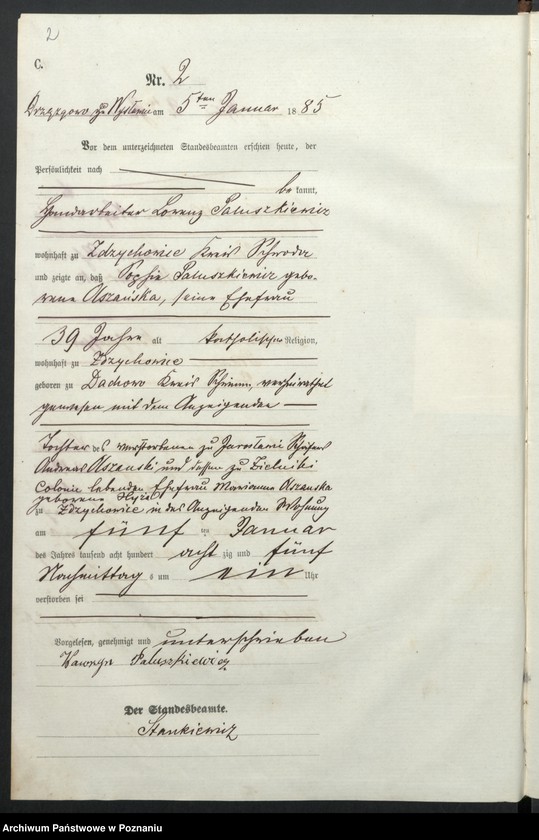 2
C.
Nr. 2
am 5ten Januar 1885
Vor dem unterzeichneten Standesbeamten erschien heute, der
Persönlichkeit nach
be kannt,
Handarbeiter Lorenz Paluszkiewicz
wohnhaft zu Zdzychowice Kreis Schroda
und zeigte an, daß Sophie Paluszkiewicz gebo-
rene Aszańska, seine Ehefrau
39 Jahre alt katholischer Religion,
wohnhaft zu Zdzychowice
geboren zu Dachowo Kreis Schrimm, verheirathet
gewesen mit dem Anzeigenden
Tochter des verstorbenen zu Jaroslawiec
Andreas Aszanski und dessen zu Zielniki
Colonie lebenden Ehefrau Marianna Aszanska
geborene
zu Zdzychowice in des Anzeigenden Wohnung
am fünf ten Januar
des Jahres tausend acht hundert acht zig und fünf
Nachmittag s um ein Uhr
verstorben sei
Vorgelesen, genehmigt und unterschrieben
Wawrzyn Paluszkiewicz
Der Standesbeamte.
Stankiewicz
Archiwum Państwowe w Poznaniu